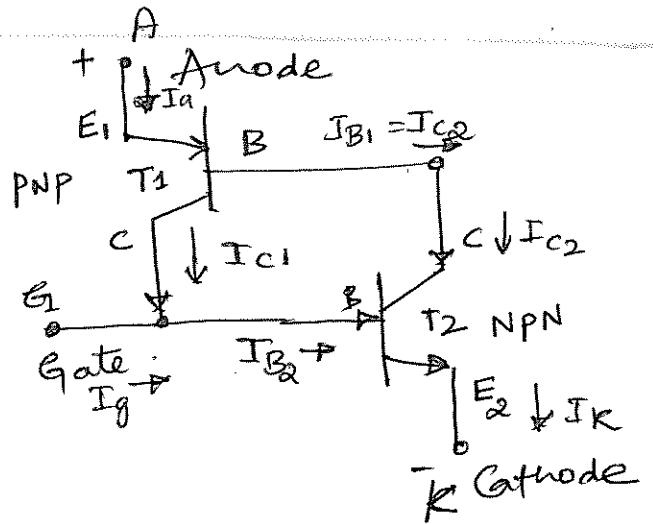 A
+ Anode
Ia
E1
B
IB1 = IC2
PNP T1
C
IC1
C IC2
G
B
T2 NPN
Gate
IB2
Ig
E2
IK
-
K Cathode